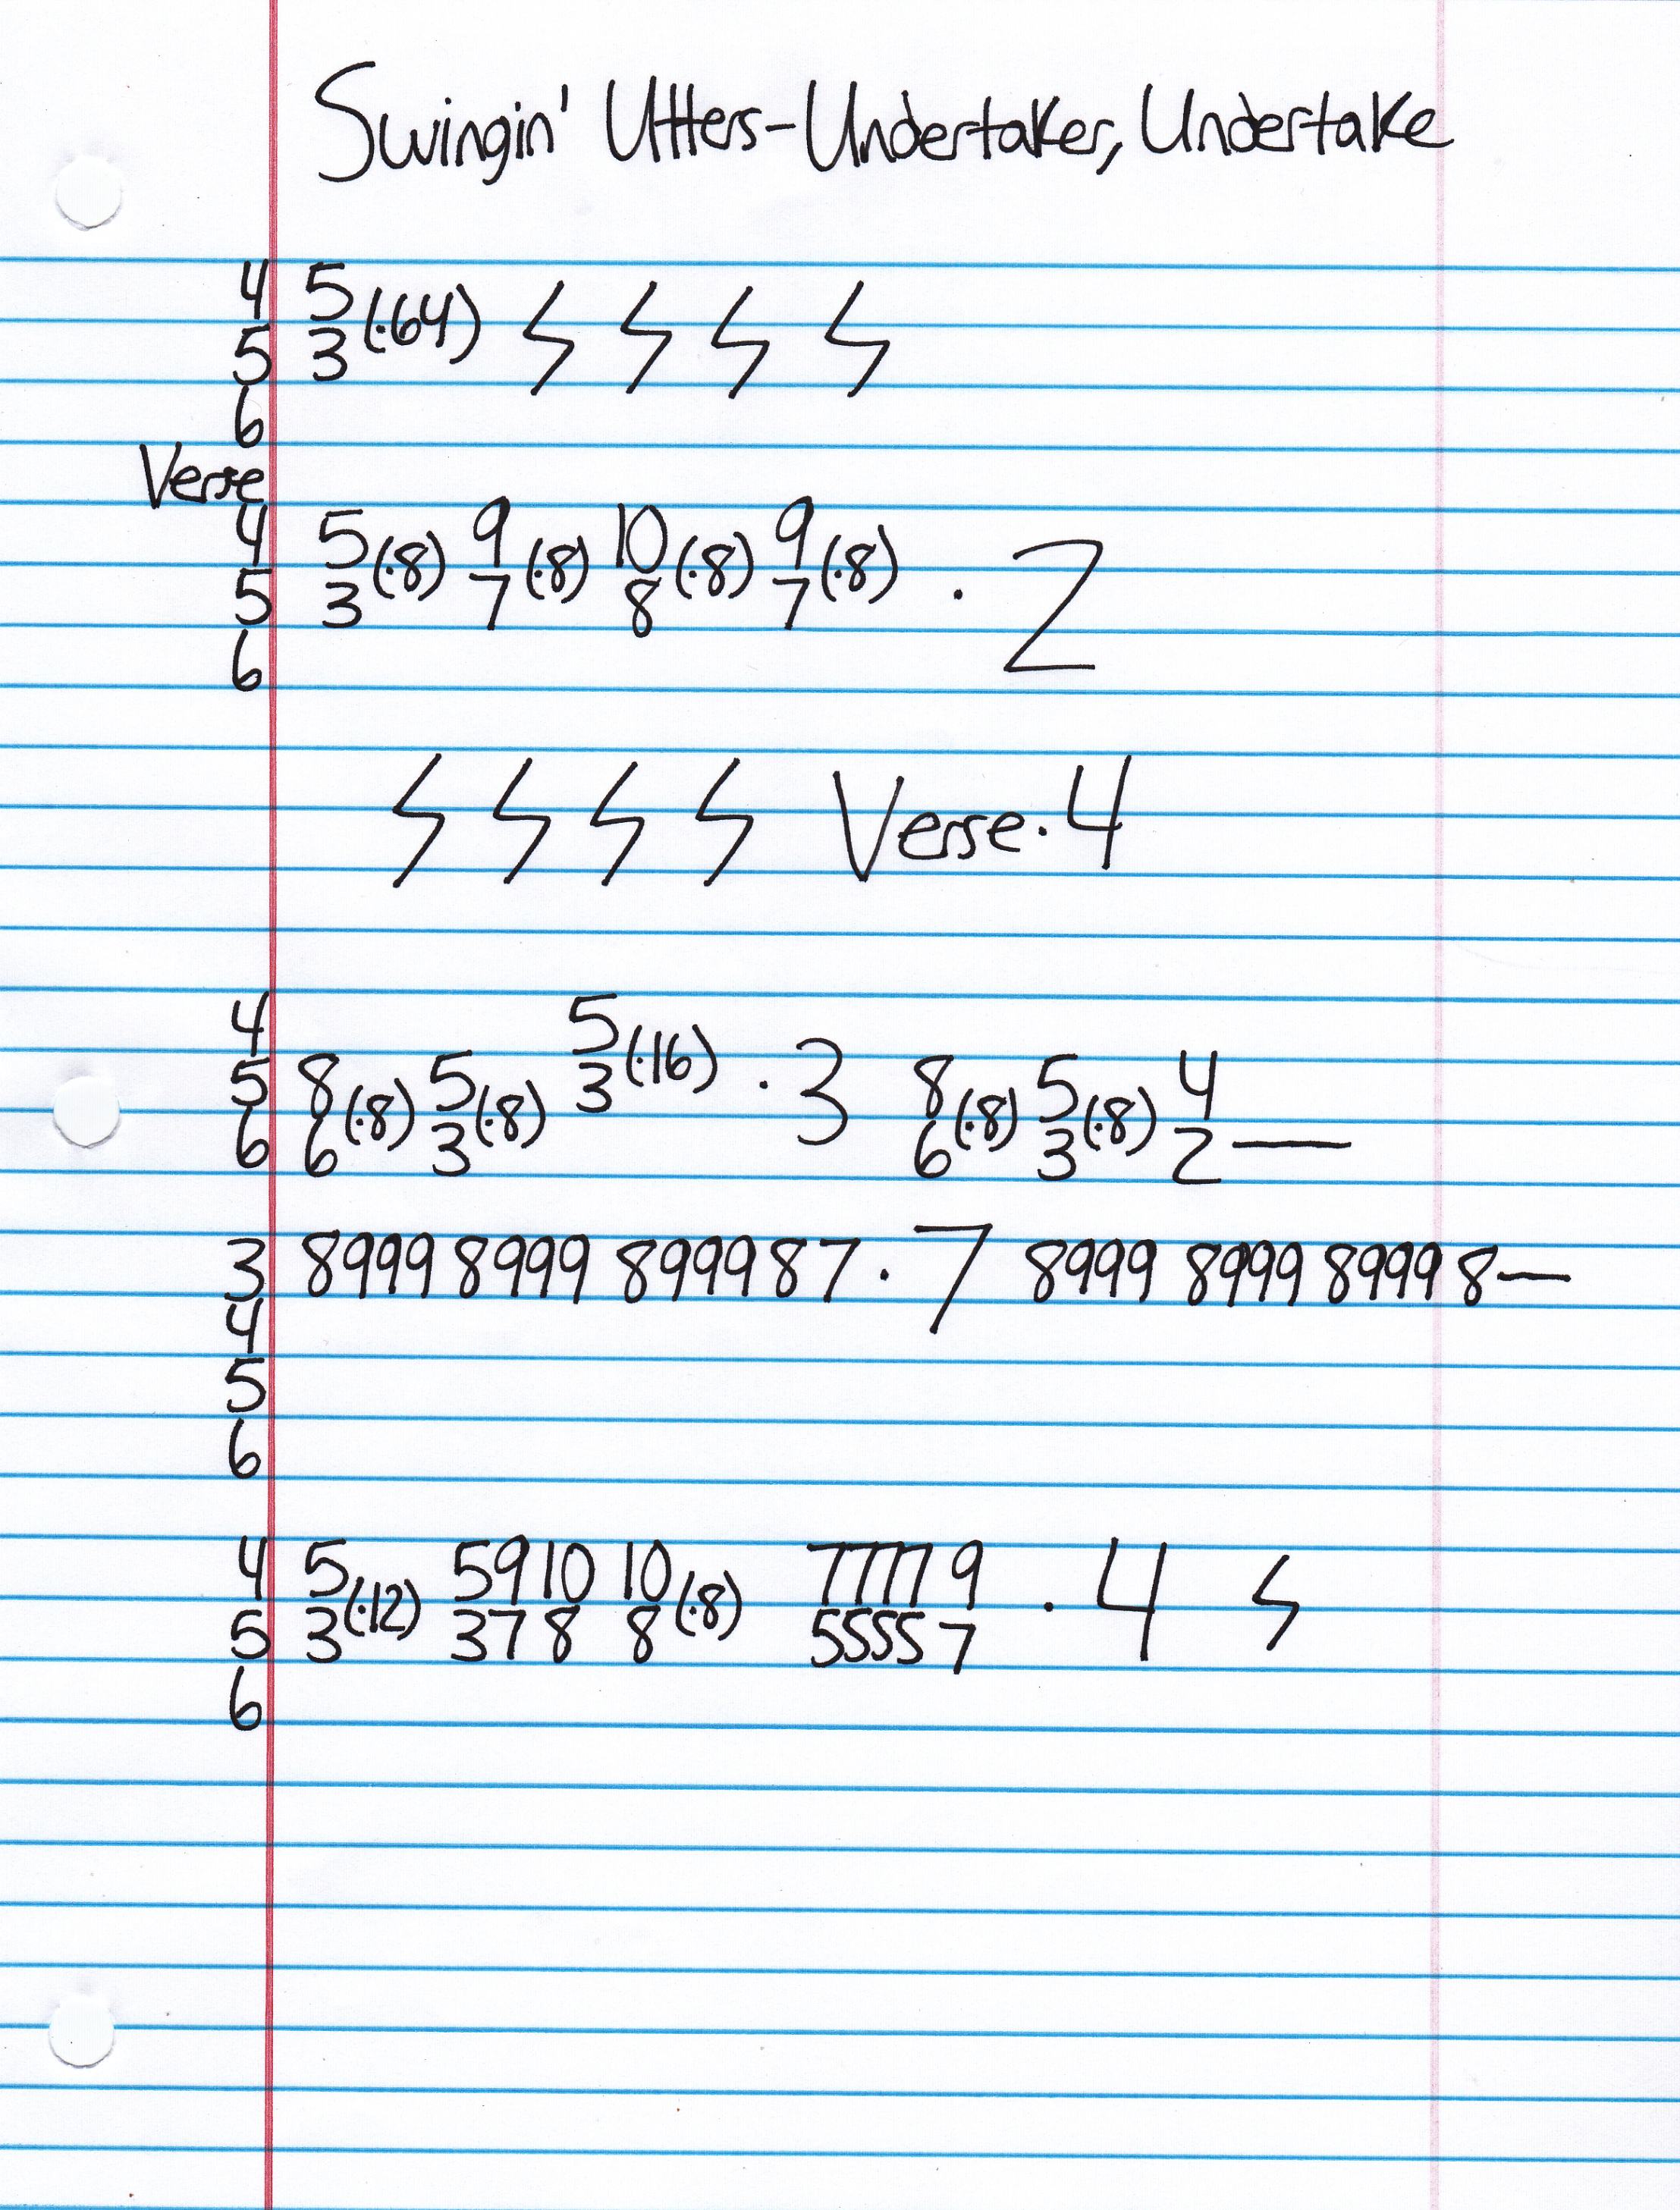 Swingin' Utters-Undertaker, Undertake
4 5
5 3 (·64)
6
Verse
4 5 9 10 9
5 3 (·8) 7 (·8) 8 (·8) 7 (·8) · 2
6
Verse·4
4 5
5 8 5 3 (·16) · 3 8 5 4
6 6 (·8) 3 (·8) 6 (·8) 3 (·8) 2 —
3 8999 8999 899987 · 7 8999 8999 8999 8—
4
5
6
4 5 5 9 10 10 7777 9
5 3 (·12) 3 7 8 8 (·8) 5555 7 · 4
6